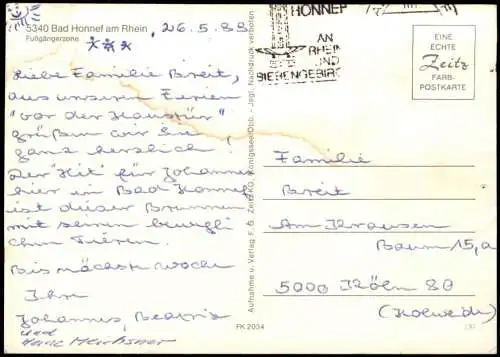 5340 Bad Honnef am Rhein, 26.5.88
Fußgängerzone
Liebe Familie Breit,
aus unseren Ferien
"vor der Haustür"
grüßen wir Sie
ganz herzlich
Der "Hit" für Johannes
hier in Bad Honnef
ist dieser Brunnen
mit seinen bewegli
chen Tieren.
Bis nächste Woche
Ihre
Johannes, Beatrix
und
Aufnahme u. Verlag F. G. Zeitz KG, Königssee/Obb. - Jegl. Nachdruck verboten
FK 2034
HONNEF
AM
RHEIN
UND
SIEBENGEBIRG
EINE
ECHTE
Zeitz
FARB-
POSTKARTE
Familie
Breit
Am Krausen
Baum 15, a
5000 Köln 80
(Holweide)